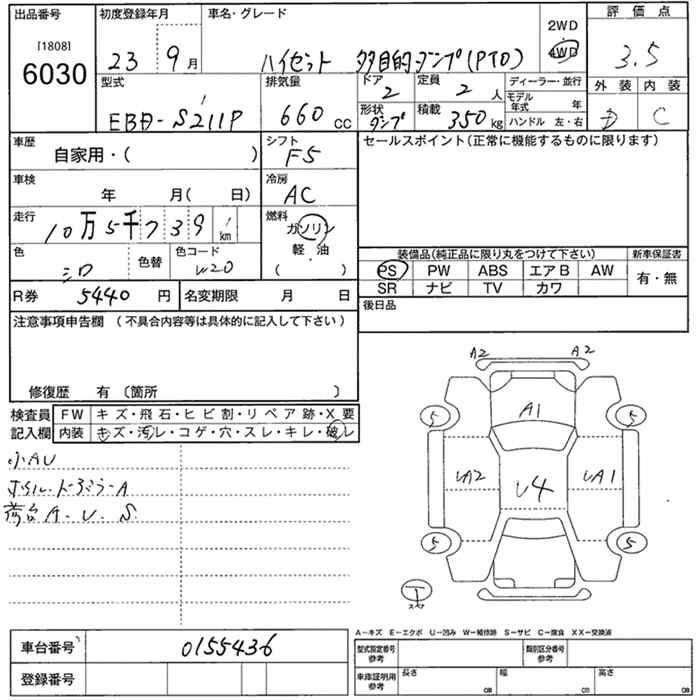 出品番号 初度登録年月 車名・グレード 2WD 評価点
［1808］
6030
23 9月 ハイゼット 多目的ダンプ(PTO) 4WD 3.5
型式 排気量 ドア 定員 ディーラー・並行 外装 内装
2 2 人 モデル年式 年
EBD-S211P 660 CC 形状 ダンプ 積載 350 kg ハンドル 左・右 D C
車歴 シフト セールスポイント(正常に機能するものに限ります)
自家用・( ) F5
車検 冷房
年 月( 日) AC
走行 燃料
10万5千739 km ガソリン
色 色替 色コード 軽・油 装備品(純正品に限り丸をつけて下さい) 新車保証書
シロ W20 ( ) PS PW ABS エアB AW 有・無
SR ナビ TV カワ
R券 5440 円 名変期限 月 日 後日品
注意事項申告欄 （不具合内容等は具体的に記入して下さい）
修復歴 有 〔箇所 〕
検査員 FW キズ・飛石・ヒビ割・リペア跡・X要
記入欄 内装 キズ・汚レ・コゲ・穴・スレ・キレ・破レ
小AU
荷台A.U.S.
A2 A2
A1
5 5
UA2 U4 UA1
5 5
T
スペア
A－キズ E－エクボ U－凹み W－補修跡 S－サビ C－腐食 XX－交換済
車台番号 0155436 型式指定番号 参考 類別区分番号 参考
登録番号 車庫証明用 参考 長さ cm 幅 cm 高さ cm